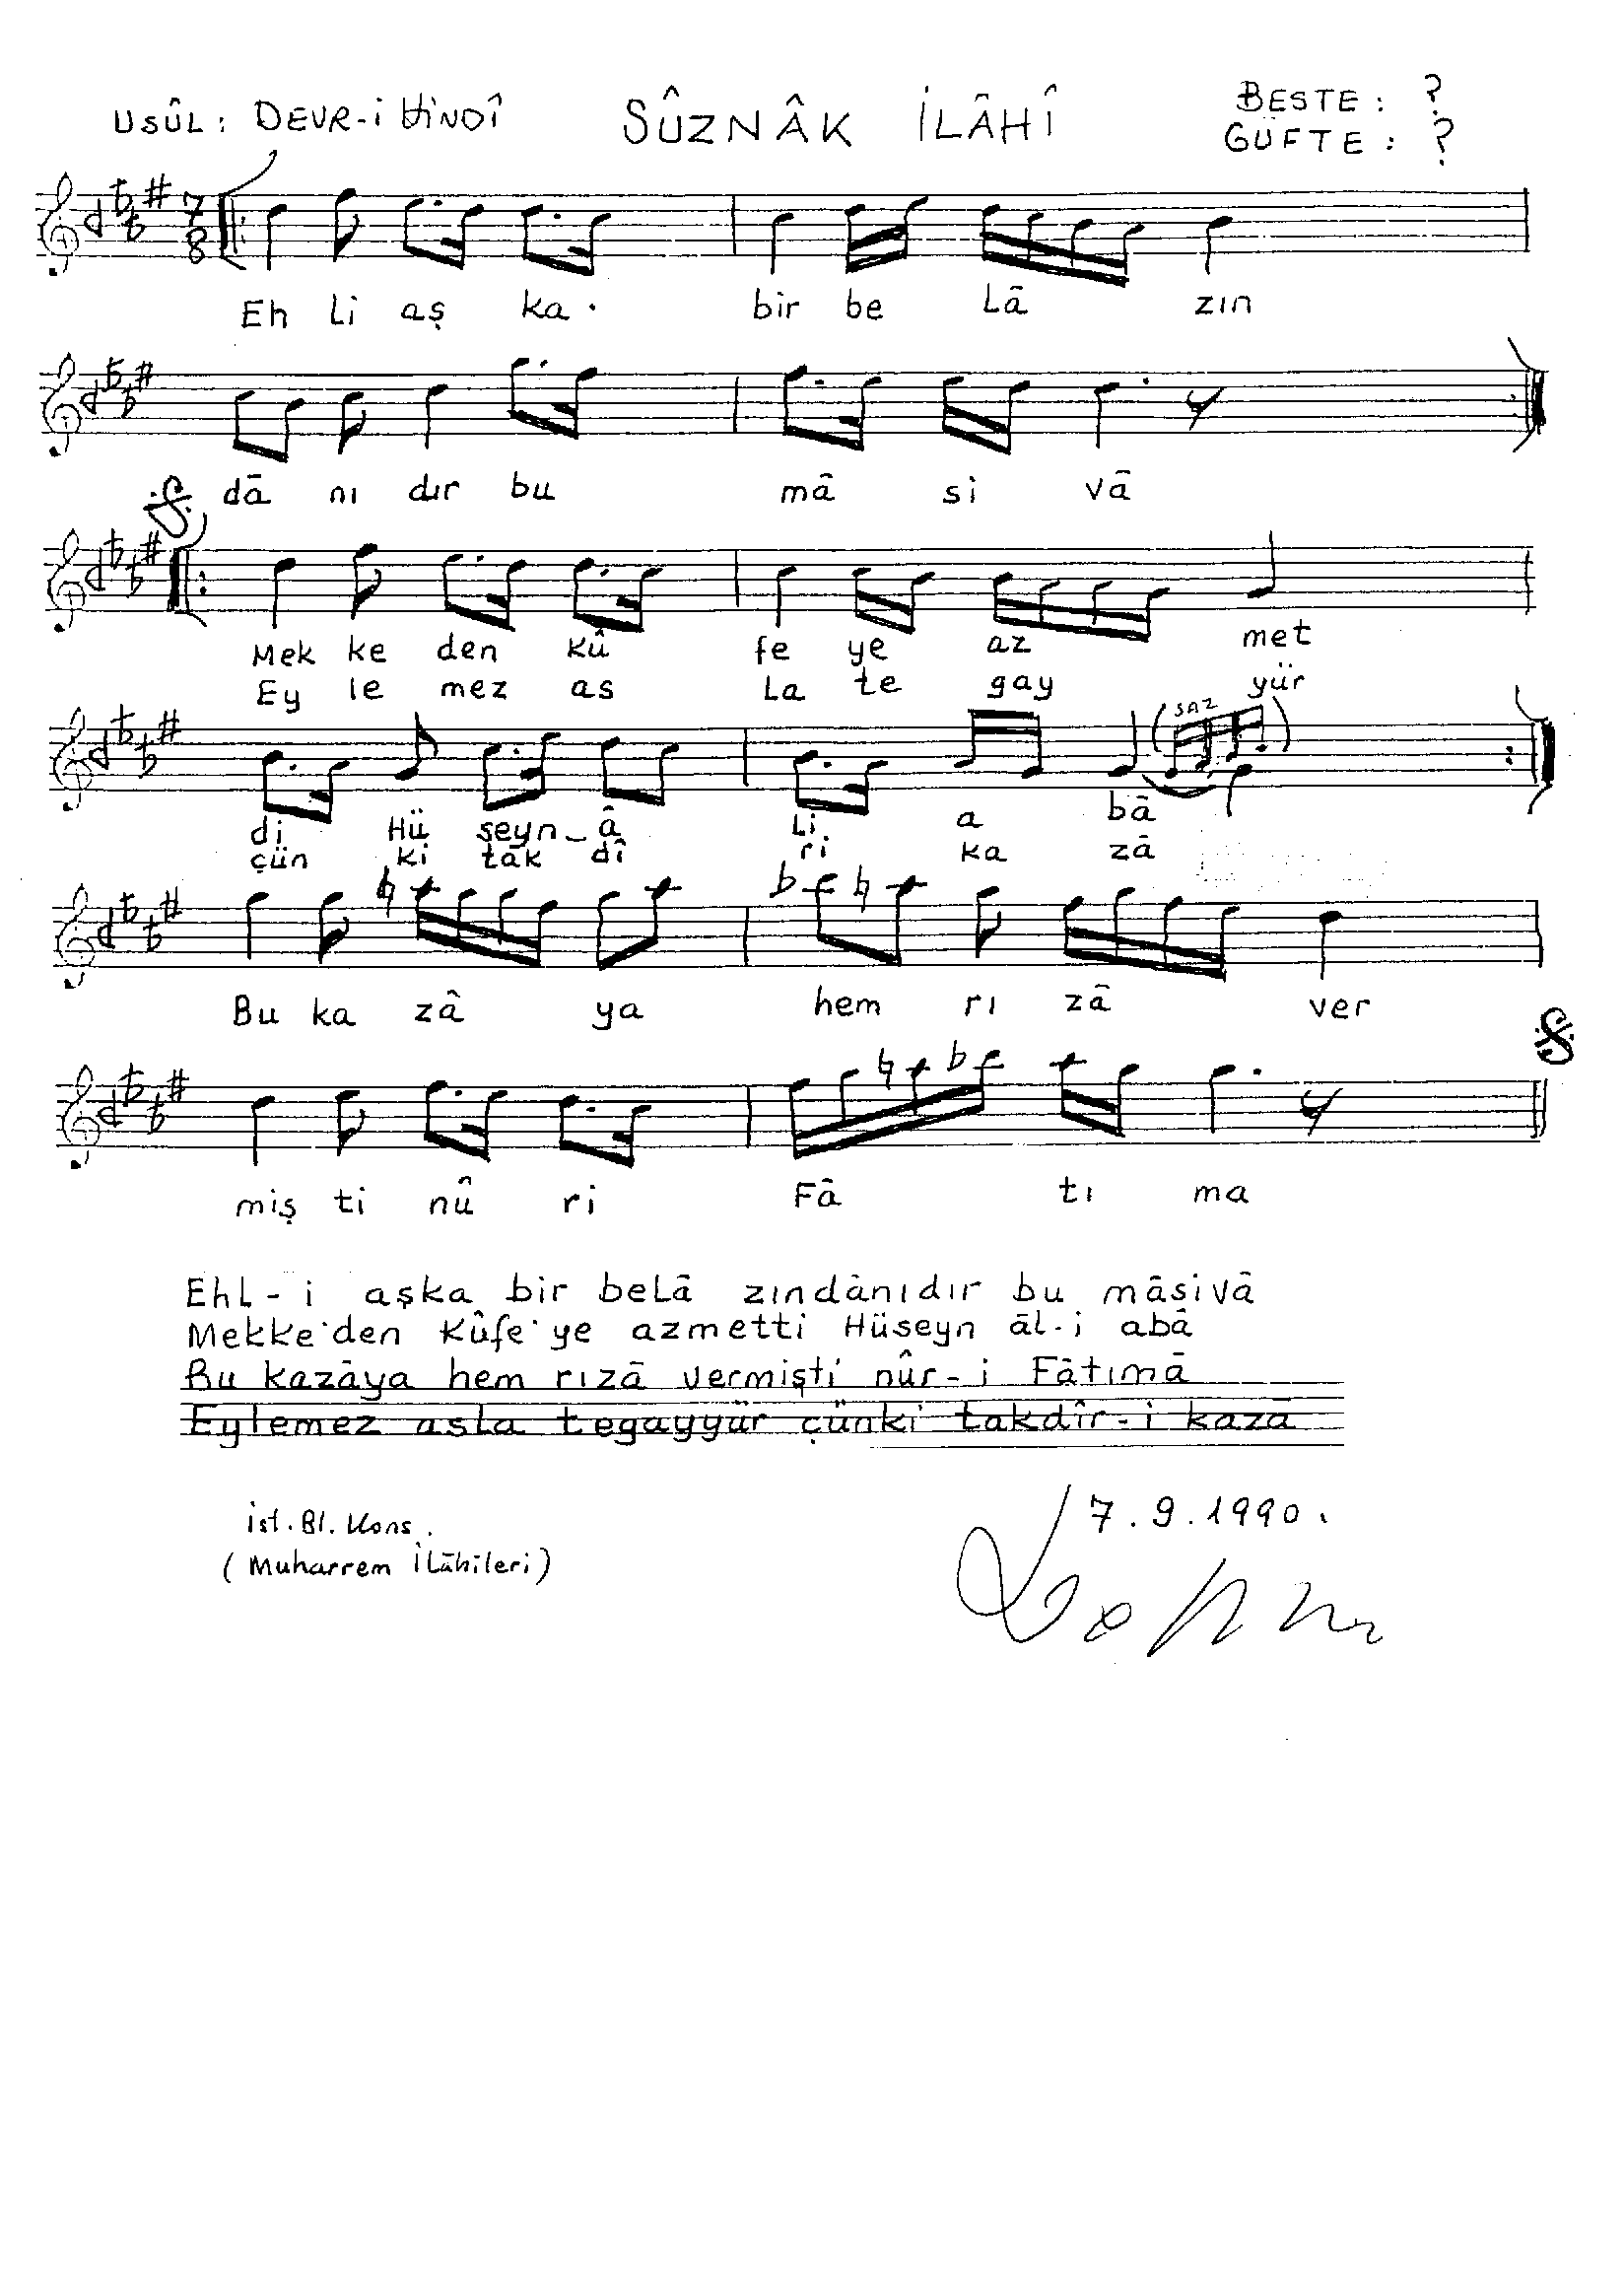 USÛL : DEVR-İ HİNDÎ SÛZNÂK İLÂHÎ BESTE : ?
GÜFTE : ?
7
8
Eh li aş ka . bir be Lâ zın
dā nı dır bu mâ si vâ
Mek ke den kû fe ye az met
Ey le mez as La te gay yür
SAZ
di Hü seyn_â Li a bā
çün ki tak dî ri ka zā
Bu ka zâ ya hem rı zâ ver
miş ti nû ri Fā tı ma
EhL-i aşka bir beLā zındānıdır bu māsivā
Mekke'den Kûfe'ye azmetti Hüseyn āl-i abā
Bu kazāya hem rızā vermişti nûr-i Fātımā
Eylemez asLa tegayyür çünki takdîr-i kazā
7.9.1990.
İst. Bl. Kons.
(Muharrem İLāhileri)